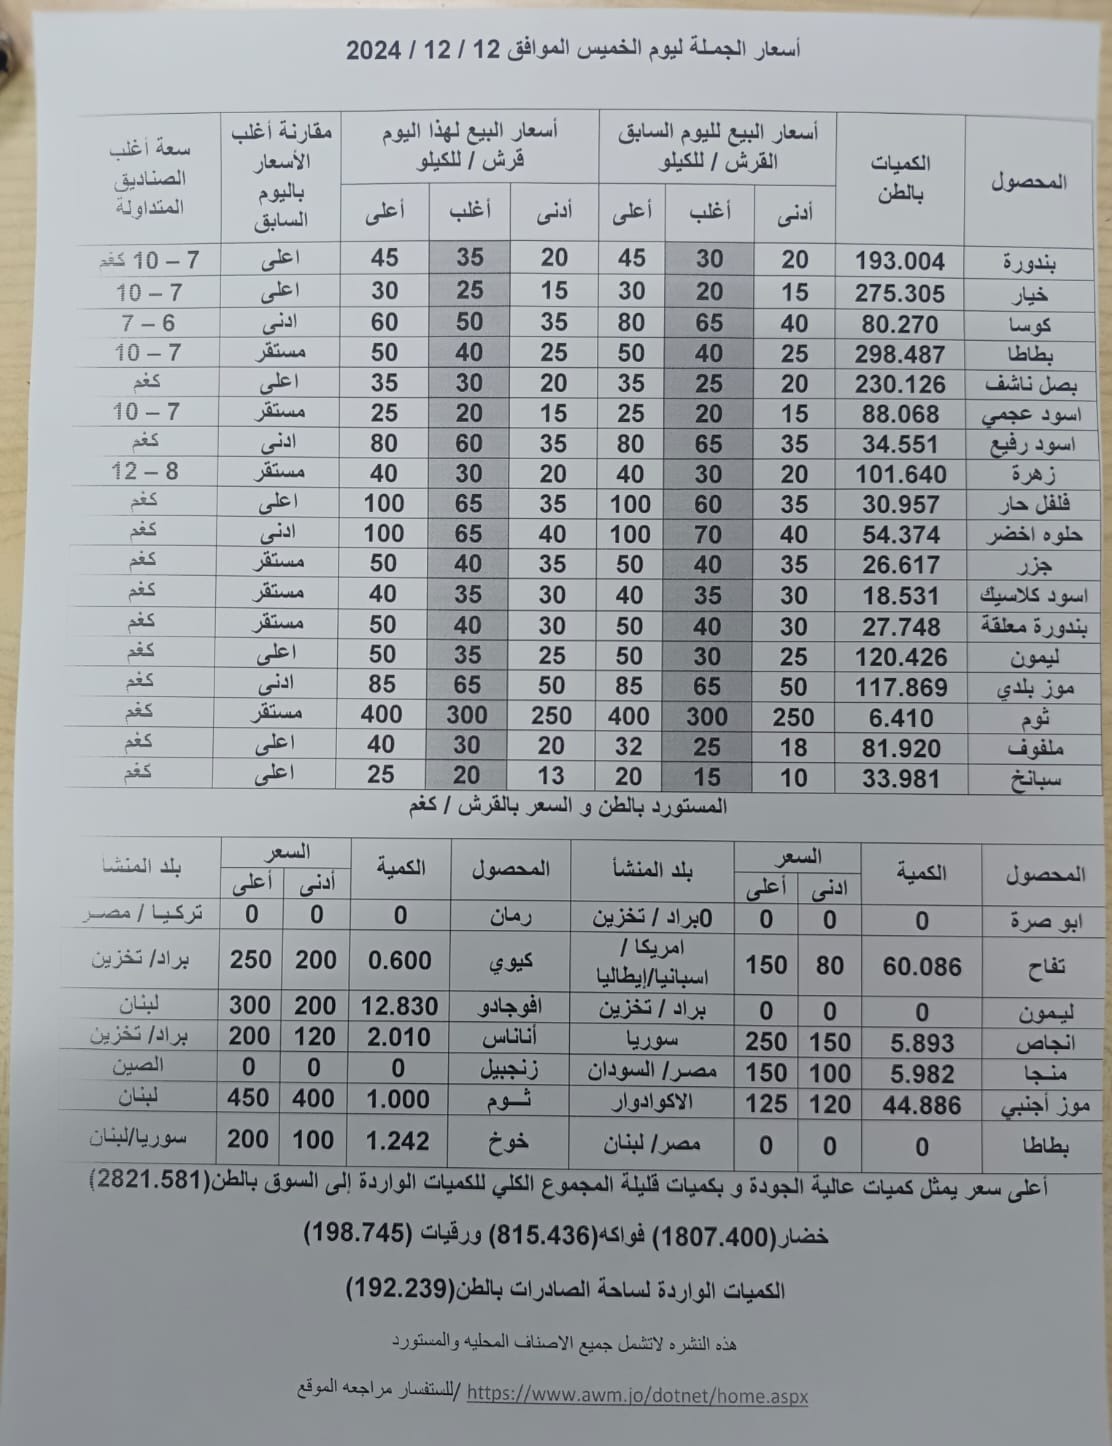 أسعار الجملة ليوم الخميس الموافق 12 / 12 / 2024
المحصول الكميات بالطن أسعار البيع لليوم السابق القرش / للكيلو أسعار البيع لهذا اليوم قرش / للكيلو مقارنة أغلب الأسعار باليوم السابق سعة أغلب الصناديق المتداولة
أدنى أغلب أعلى أدنى أغلب أعلى
بندورة 193.004 20 30 45 20 35 45 اعلى 7 – 10 كغم
خيار 275.305 15 20 30 15 25 30 اعلى 7 – 10
كوسا 80.270 40 65 80 35 50 60 ادنى 6 – 7
بطاطا 298.487 25 40 50 25 40 50 مستقر 7 – 10
بصل ناشف 230.126 20 25 35 20 30 35 اعلى كغم
اسود عجمي 88.068 15 20 25 15 20 25 مستقر 7 – 10
اسود رفيع 34.551 35 65 80 35 60 80 ادنى كغم
زهرة 101.640 20 30 40 20 30 40 مستقر 8 – 12
فلفل حار 30.957 35 60 100 35 65 100 اعلى كغم
حلوه اخضر 54.374 40 70 100 40 65 100 ادنى كغم
جزر 26.617 35 40 50 35 40 50 مستقر كغم
اسود كلاسيك 18.531 30 35 40 30 35 40 مستقر كغم
بندورة معلقة 27.748 30 40 50 30 40 50 مستقر كغم
ليمون 120.426 25 30 50 25 35 50 اعلى كغم
موز بلدي 117.869 50 65 85 50 65 85 ادنى كغم
ثوم 6.410 250 300 400 250 300 400 مستقر كغم
ملفوف 81.920 18 25 32 20 30 40 اعلى كغم
سبانخ 33.981 10 15 20 13 20 25 اعلى كغم
المستورد بالطن و السعر بالقرش / كغم
المحصول الكمية السعر بلد المنشأ المحصول الكمية السعر بلد المنشأ
ادنى أعلى أدنى أعلى
ابو صرة 0 0 0 0براد / تخزين رمان 0 0 0 تركيا / مصر
تفاح 60.086 80 150 امريكا / اسبانيا/إيطاليا كيوي 0.600 200 250 براد/ تخزين
ليمون 0 0 0 براد / تخزين افوجادو 12.830 200 300 لبنان
انجاص 5.893 150 250 سوريا أناناس 2.010 120 200 براد/ تخزين
منجا 5.982 100 150 مصر/ السودان زنجبيل 0 0 0 الصين
موز أجنبي 44.886 120 125 الاكوادوار ثوم 1.000 400 450 لبنان
بطاطا 0 0 0 مصر/ لبنان خوخ 1.242 100 200 سوريا/لبنان
أعلى سعر يمثل كميات عالية الجودة و بكميات قليلة المجموع الكلي للكميات الواردة إلى السوق بالطن(2821.581)
خضار(1807.400) فواكه(815.436) ورقيات (198.745)
الكميات الواردة لساحة الصادرات بالطن(192.239)
هذه النشره لاتشمل جميع الاصناف المحليه والمستورد
للستفسار مراجعه الموقع/ https://www.awm.jo/dotnet/home.aspx